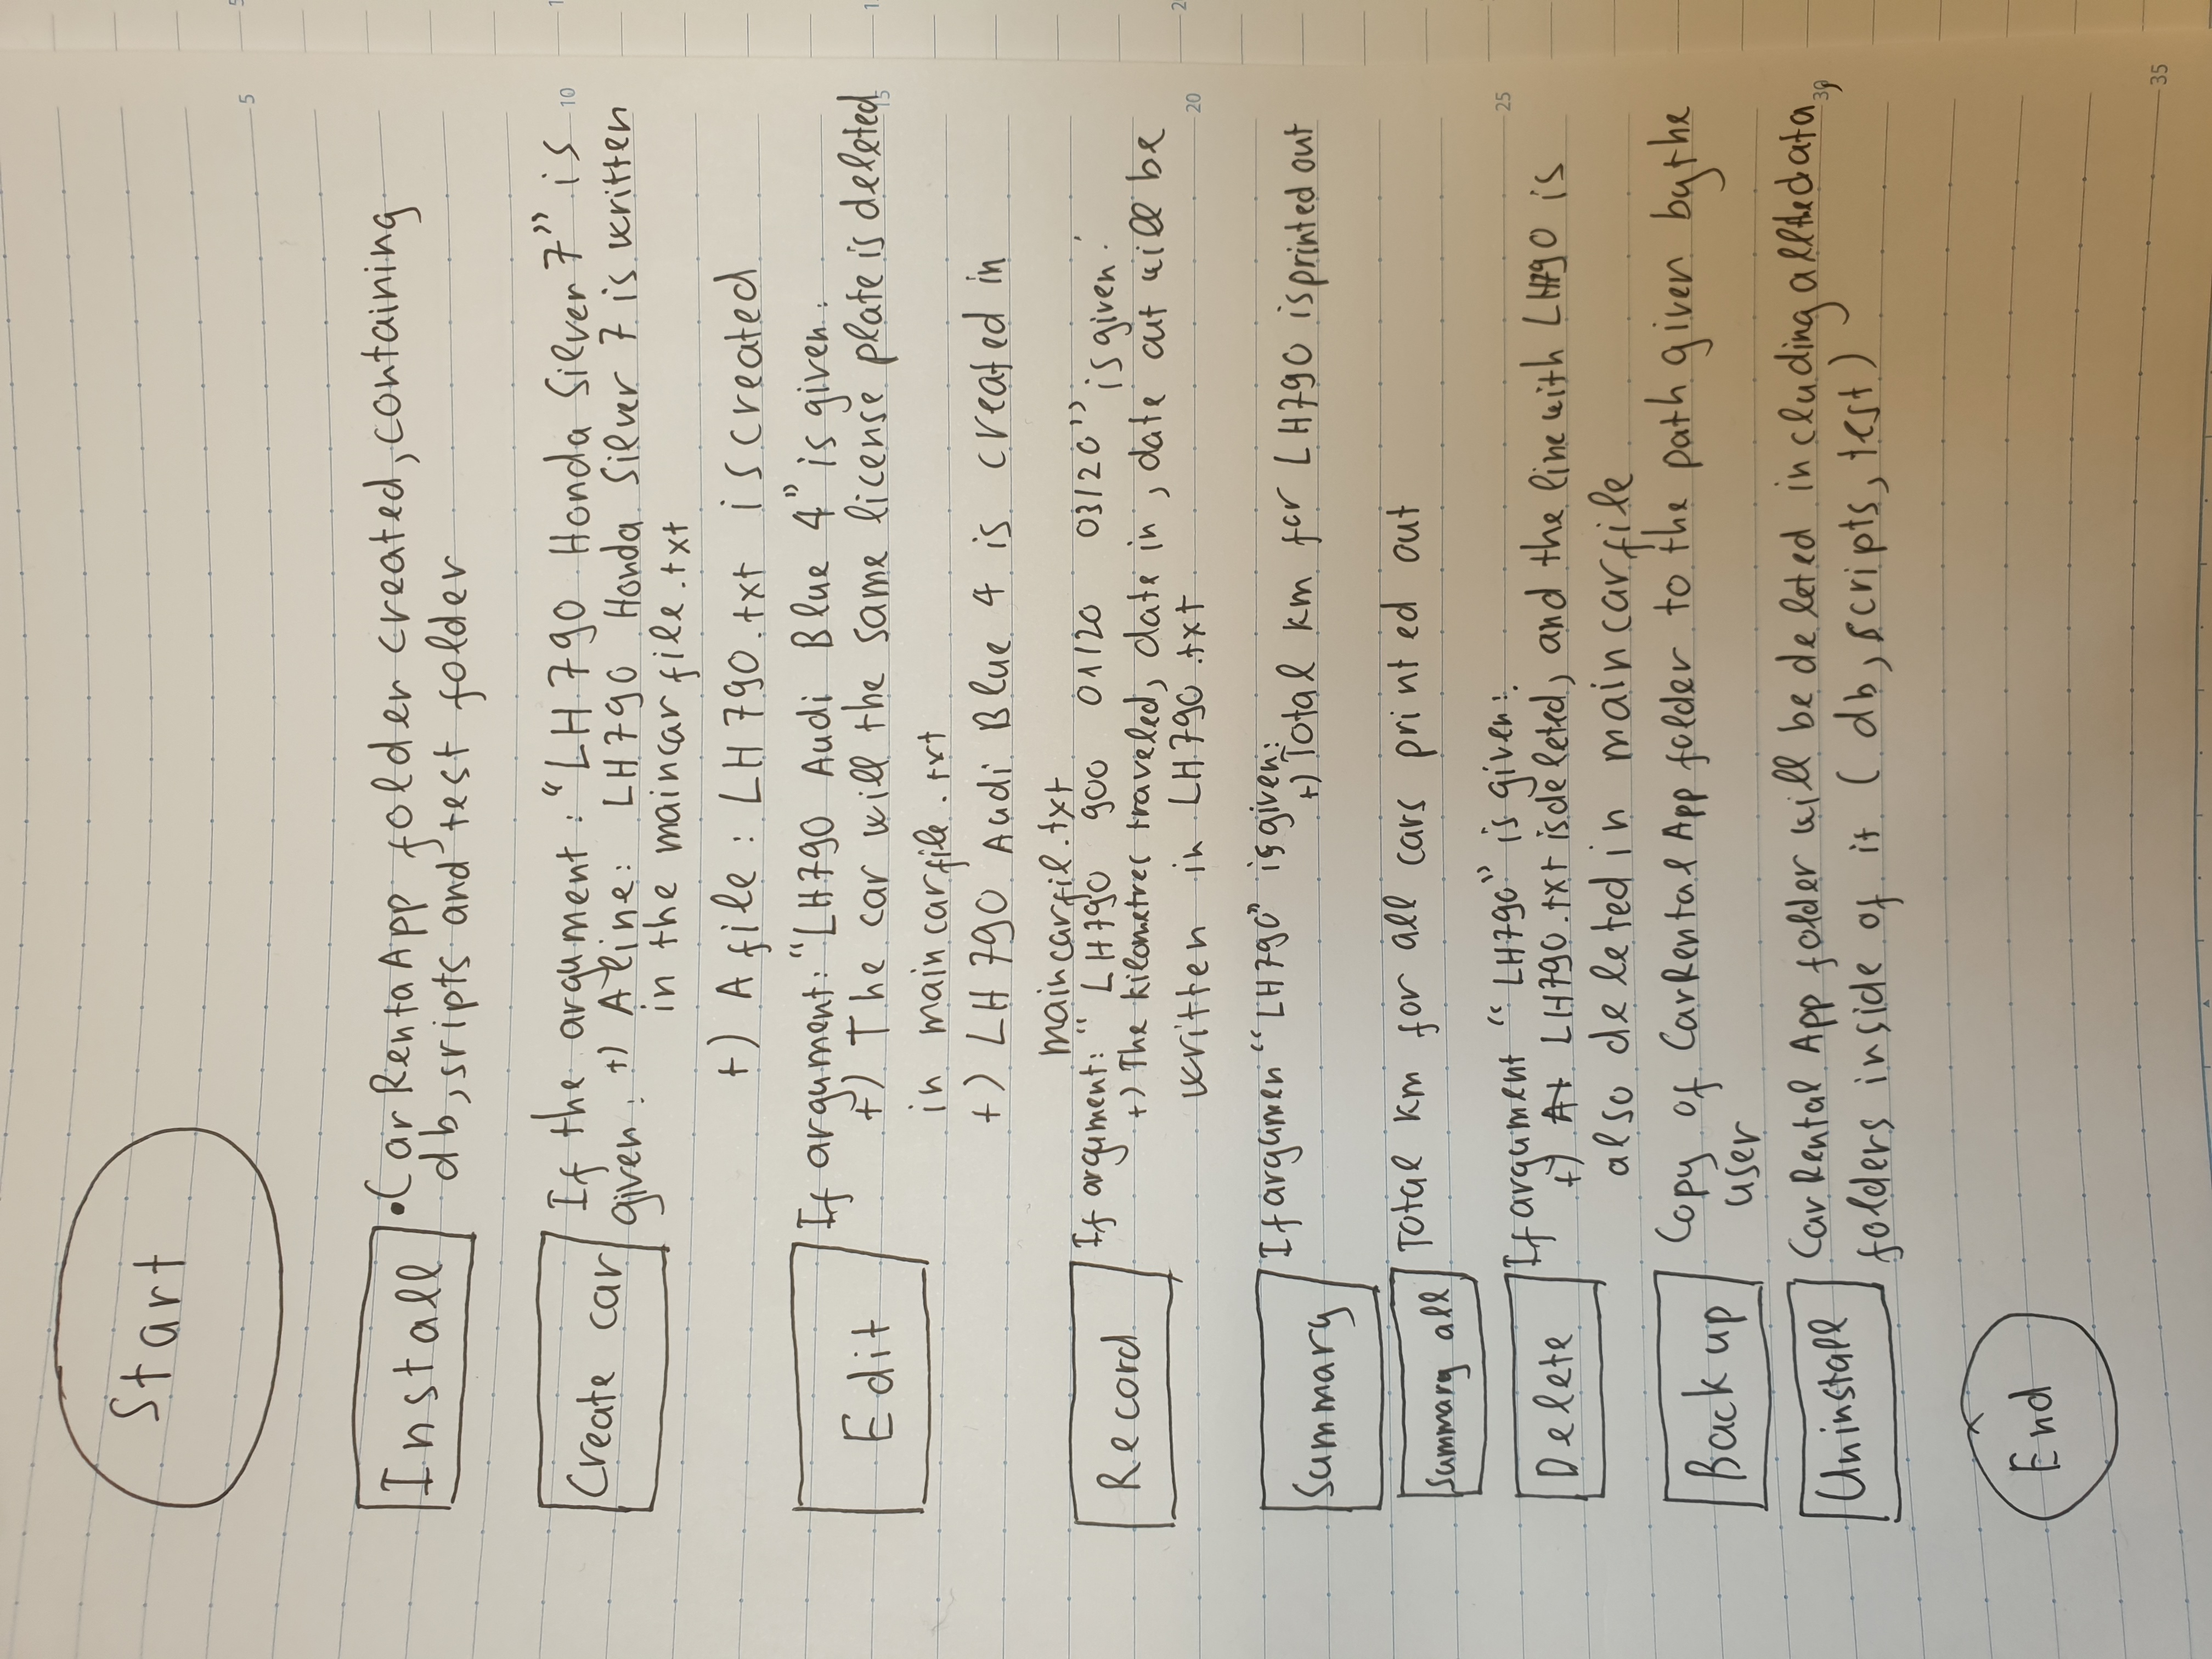 Start
5
Install
• CarRentalApp folder created, containing
db, sripts and test folder
Create car
If the argument: "LH790 Honda Silver 7" is
10
given: +) A line: LH790 Honda Silver 7 is written
in the maincarfile.txt
+) A file: LH790.txt is created
Edit
If argument: "LH790 Audi Blue 4" is given:
+) The car will the same license plate is deleted
15
in maincarfile.txt
+) LH790 Audi Blue 4 is created in
maincarfil.txt
Record
If argument: "LH790 900 01/20 03/20" is given:
+) The kilometres traveled, date in, date out will be
written in LH790.txt
20
Summary
If argumen "LH790" is given:
+) Total km for LH790 is printed out
Summary all
Total km for all cars printed out
Delete
If argument "LH790" is given:
25
+) LH790.txt is deleted, and the line with LH790 is
also deleted in maincarfile
Back up
Copy of CarRentalApp folder to the path given by the
user
Uninstall
CarRentalApp folder will be deleted including all the data,
30
folders inside of it (db, scripts, test)
End
35